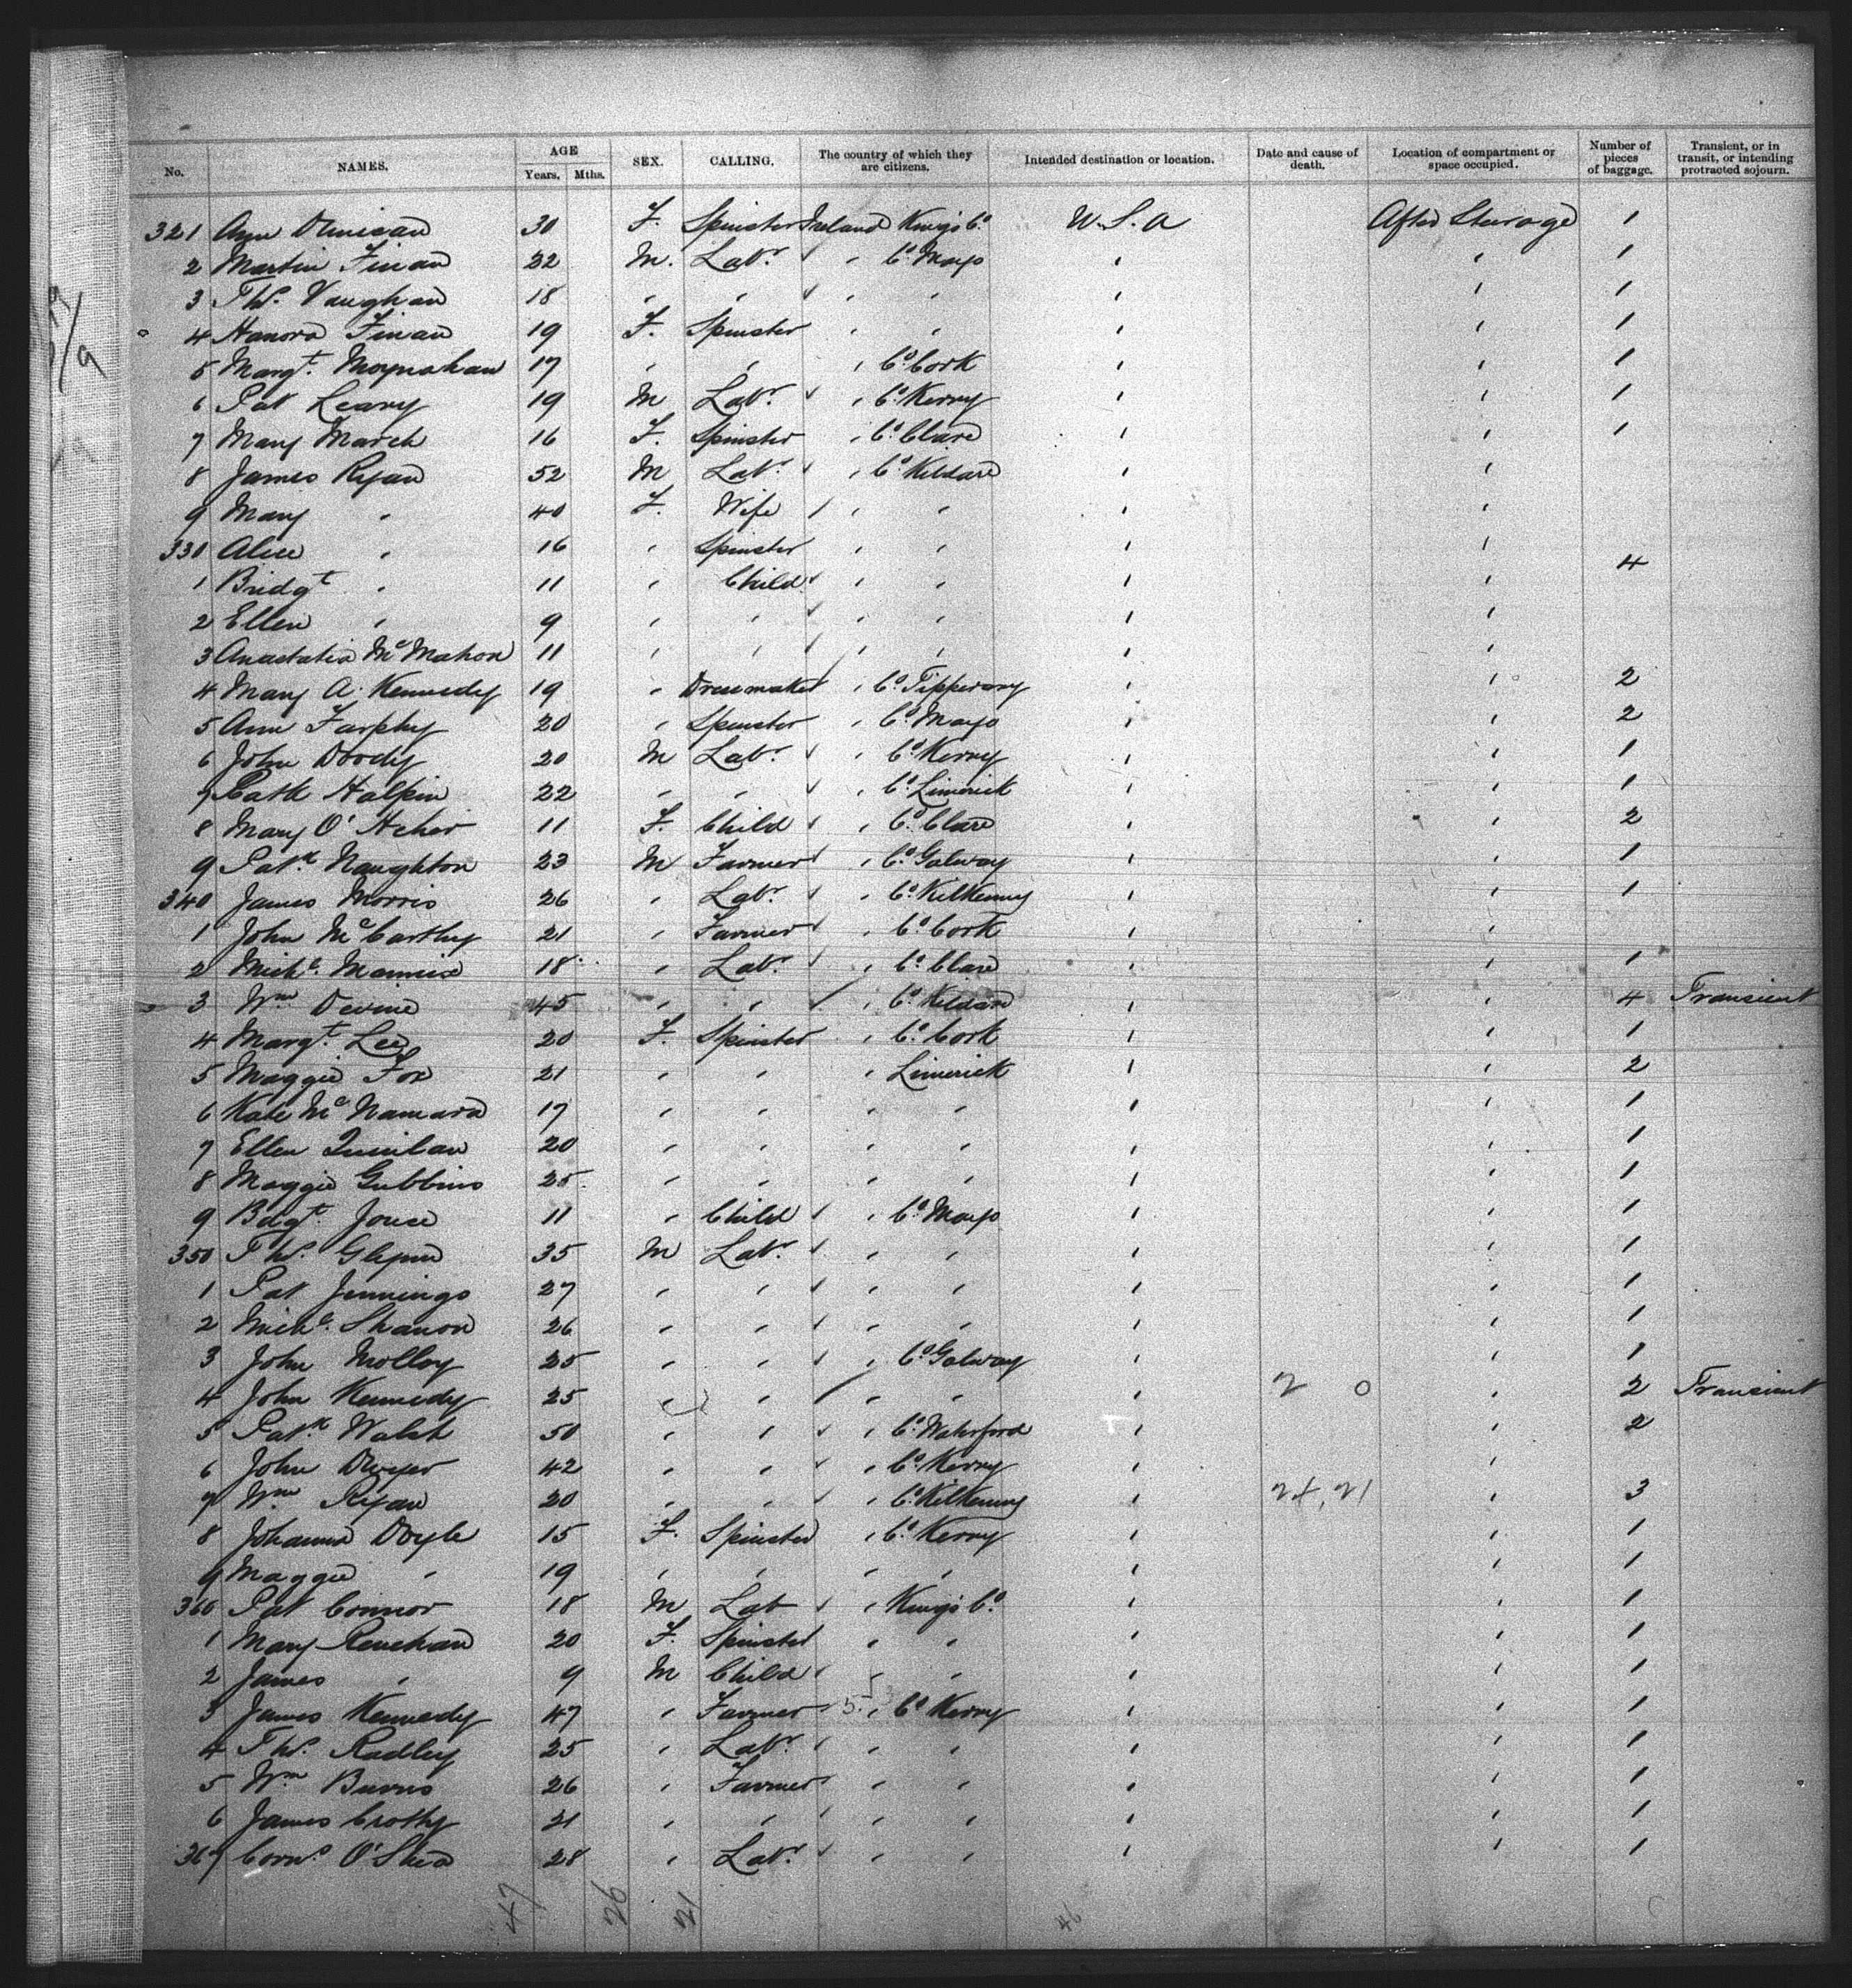 No. NAMES. AGE Years. Mths. SEX. CALLING. The country of which they are citizens. Intended destination or location. Date and cause of death. Location of compartment or space occupied. Number of pieces of baggage. Transient, or in transit, or intending protracted sojourn.
321 Ann 30 F. Spinster Ireland King's Co. U.S.A After Steerage 1
2 Martin Finan 22 M. Labr. " Co. Mayo " " 1
3 Thos. Vaughan 18 " " " " " " 1
4 Honora Finan 19 F. Spinster " " " " 1
5 Margt. Moynahan 17 " " " Co. Cork " " 1
6 Pat Leary 19 M Labr. " Co. Kerry " " 1
7 Mary March 16 F. Spinster " Co. Clare " " 1
8 James Ryan 52 M Labr. " Co. Kildare " "
9 Mary " 40 F. Wife " " " "
330 Alice " 16 " Spinster " " " "
1 Bridgt " 11 " Child " " " " 4
2 Ellen " 9 " " " " " "
3 Anastatia McMahon 11 " " " " " "
4 Mary A. Kennedy 19 " Dressmaker " Co. Tipperary " " 2
5 Ann 20 " Spinster " Co. Mayo " " 2
6 John Doody 20 M Labr. " Co. Kerry " " 1
7 Path Halpin 22 " " " Co. Limerick " " 1
8 Mary O' 11 F. Child " Co. Clare " " 2
9 Patk. Naughton 23 M Farmer " Co. Galway " " 1
340 James Morris 26 " Labr. " Co. Kilkenny " " 1
1 John McCarthy 21 " Farmer " Co. Cork " "
2 Michl. Mannix 18 " Labr. " Co. Clare " " 1
3 Wm Devine 45 " " " Co. Kildare " " 4 Transient
4 Margt. Lee 20 F. Spinster " Co. Cork " " 1
5 Maggie Fox 21 " " " Limerick " " 2
6 Kate McNamara 17 " " " " " " 1
7 Ellen Quinlan 20 " " " " " " 1
8 Maggie Gubbins 25 " " " " " " 1
9 Bdgt. Joyce 11 " Child " Co. Mayo " " 1
350 Thos. Glynn 35 M Labr. " " " " 1
1 Pat Jennings 27 " " " " " " 1
2 Michl. Shanon 26 " " " " " " 1
3 John Molloy 25 " " " Co. Galway " " 1
4 John Kennedy 25 " " " " " 2 0 " 2 Transient
5 Patk Walsh 50 " " " Co. Waterford " " 2
6 John Dwyer 42 " " " Co. Kerry " "
7 Wm Ryan 20 " " " Co. Kilkenny " " 3
8 Johanna Doyle 15 F. Spinster " Co. Kerry " " 1
9 Maggie " 19 " " " " " " 1
360 Pat Connor 18 M Lab " King's Co. " " 1
1 Mary Renehan 20 F. Spinster " " " " 1
2 James " 9 M Child " " " " 1
3 James Kennedy 47 " Farmer " Co. Kerry " " 1
4 Thos. Radley 25 " Labr. " " " " 1
5 Wm. Burns 26 " Farmer " " " " 1
6 James Crotty 21 " " " " " " 1
367 Corns. O'Shea 28 " Labr. " " " " 1
47 26 21 46